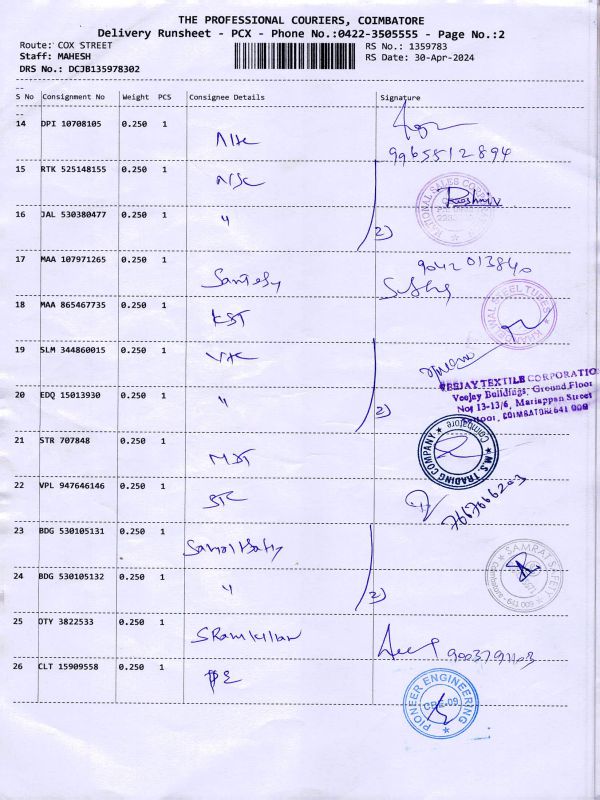 THE PROFESSIONAL COURIERS, COIMBATORE
Delivery Runsheet - PCX - Phone No.:0422-3505555 - Page No.:2
Route: COX STREET
RS No.: 1359783
Staff: MAHESH
RS Date: 30-Apr-2024
DRS No.: DCJB135978302
S No Consignment No Weight PCS Consignee Details Signature
14 DPI 10708105 0.250 1
9965512894
15 RTK 525148155 0.250 1
NATIONAL SALES
Roshni
16 JAL 530380477 0.250 1 "
2)
17 MAA 107971265 0.250 1
9042013840
18 MAA 865467735 0.250 1 KST
STEEL TUBES
19 SLM 344860015 0.250 1
20 EDQ 15013930 0.250 1 "
2)
VEEJAY TEXTILE CORPORATIO
Veejay Buildings, Ground Floor
No: 13-13/6, Mariappan Street
COIMBATORE 641 009
21 STR 707848 0.250 1
M.S. TRADING COMPANY
Coimbatore
22 VPL 947646146 0.250 1 STC
7667666203
23 BDG 530105131 0.250 1
SAMRAT SAFETY
24 BDG 530105132 0.250 1 "
2)
25 OTY 3822533 0.250 1
26 CLT 15909558 0.250 1 PE
PIONEER ENGINEERING
CBE-09